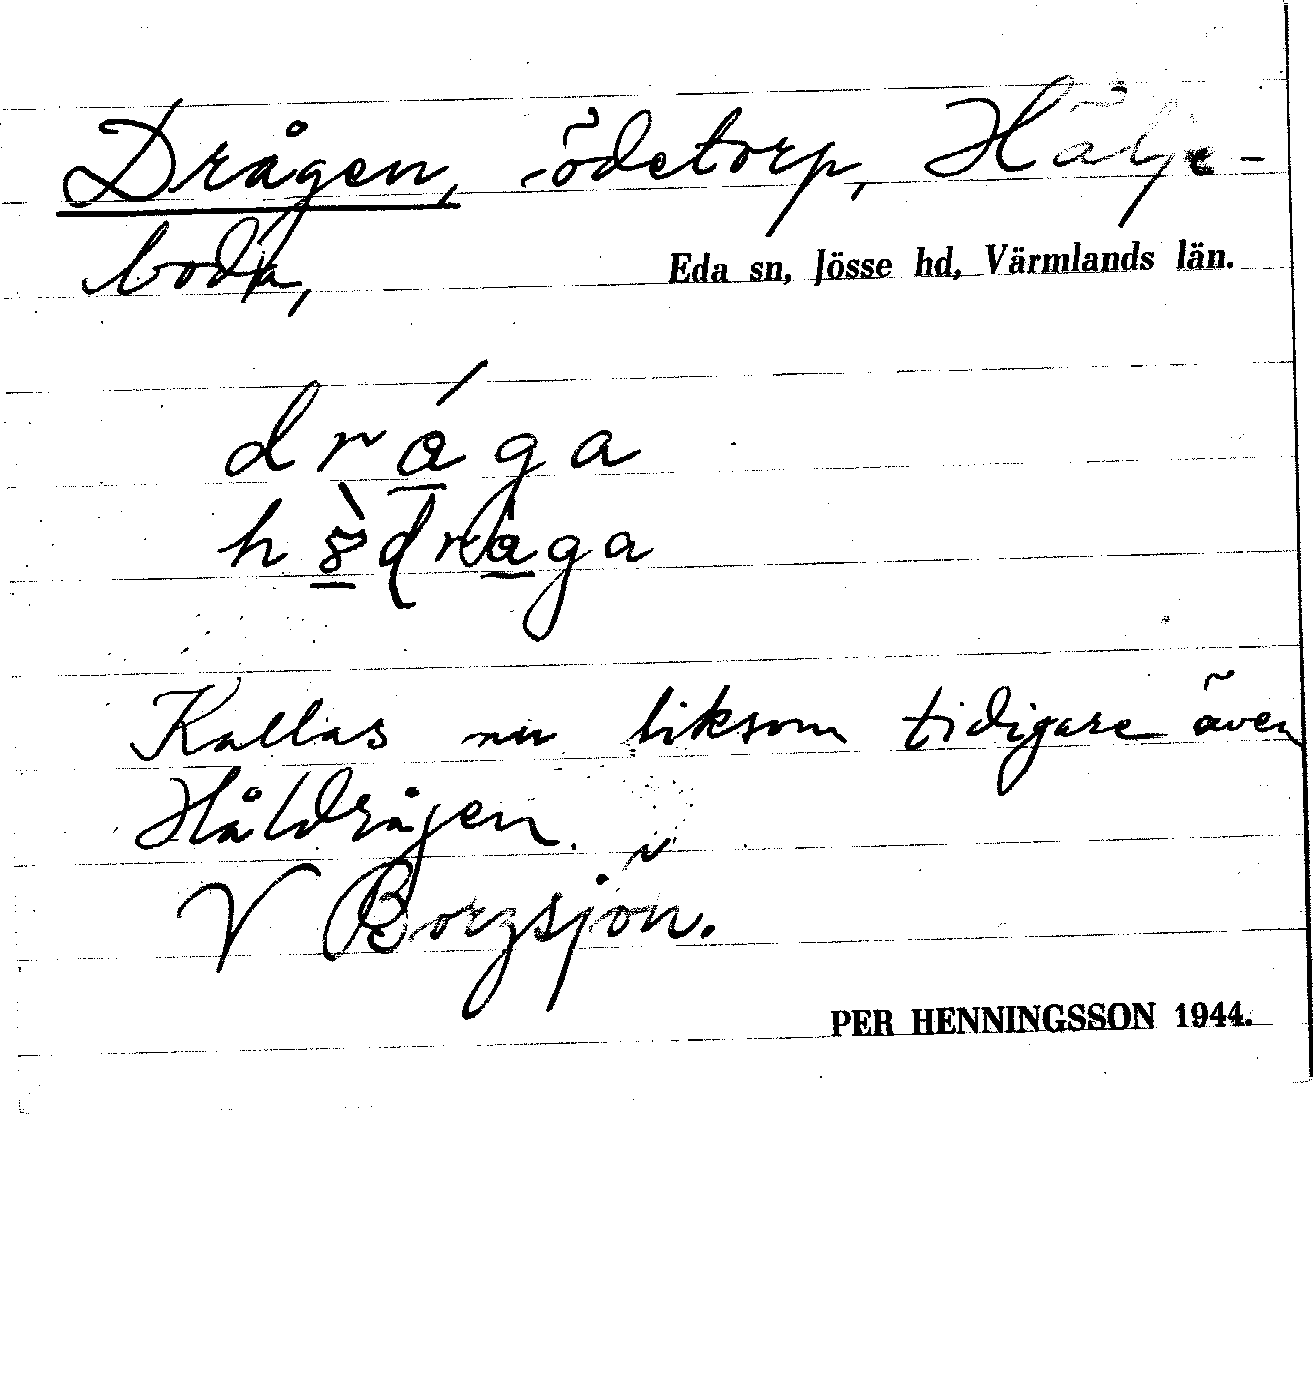 Drågen, ödetorp, Hälje-
boda,
Eda sn, Jösse hd, Värmlands län.
Kallas nu liksom tidigare även
Håldrågen.
V Borgsjön.
PER HENNINGSSON 1944.